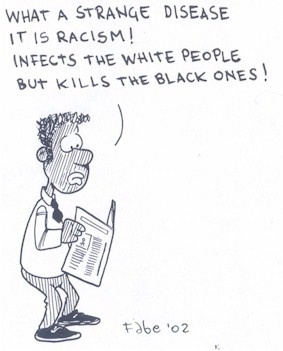 WHAT A STRANGE DISEASE
IT IS RACISM!
INFECTS THE WHITE PEOPLE
BUT KILLS THE BLACK ONES!
Fabe '02
K